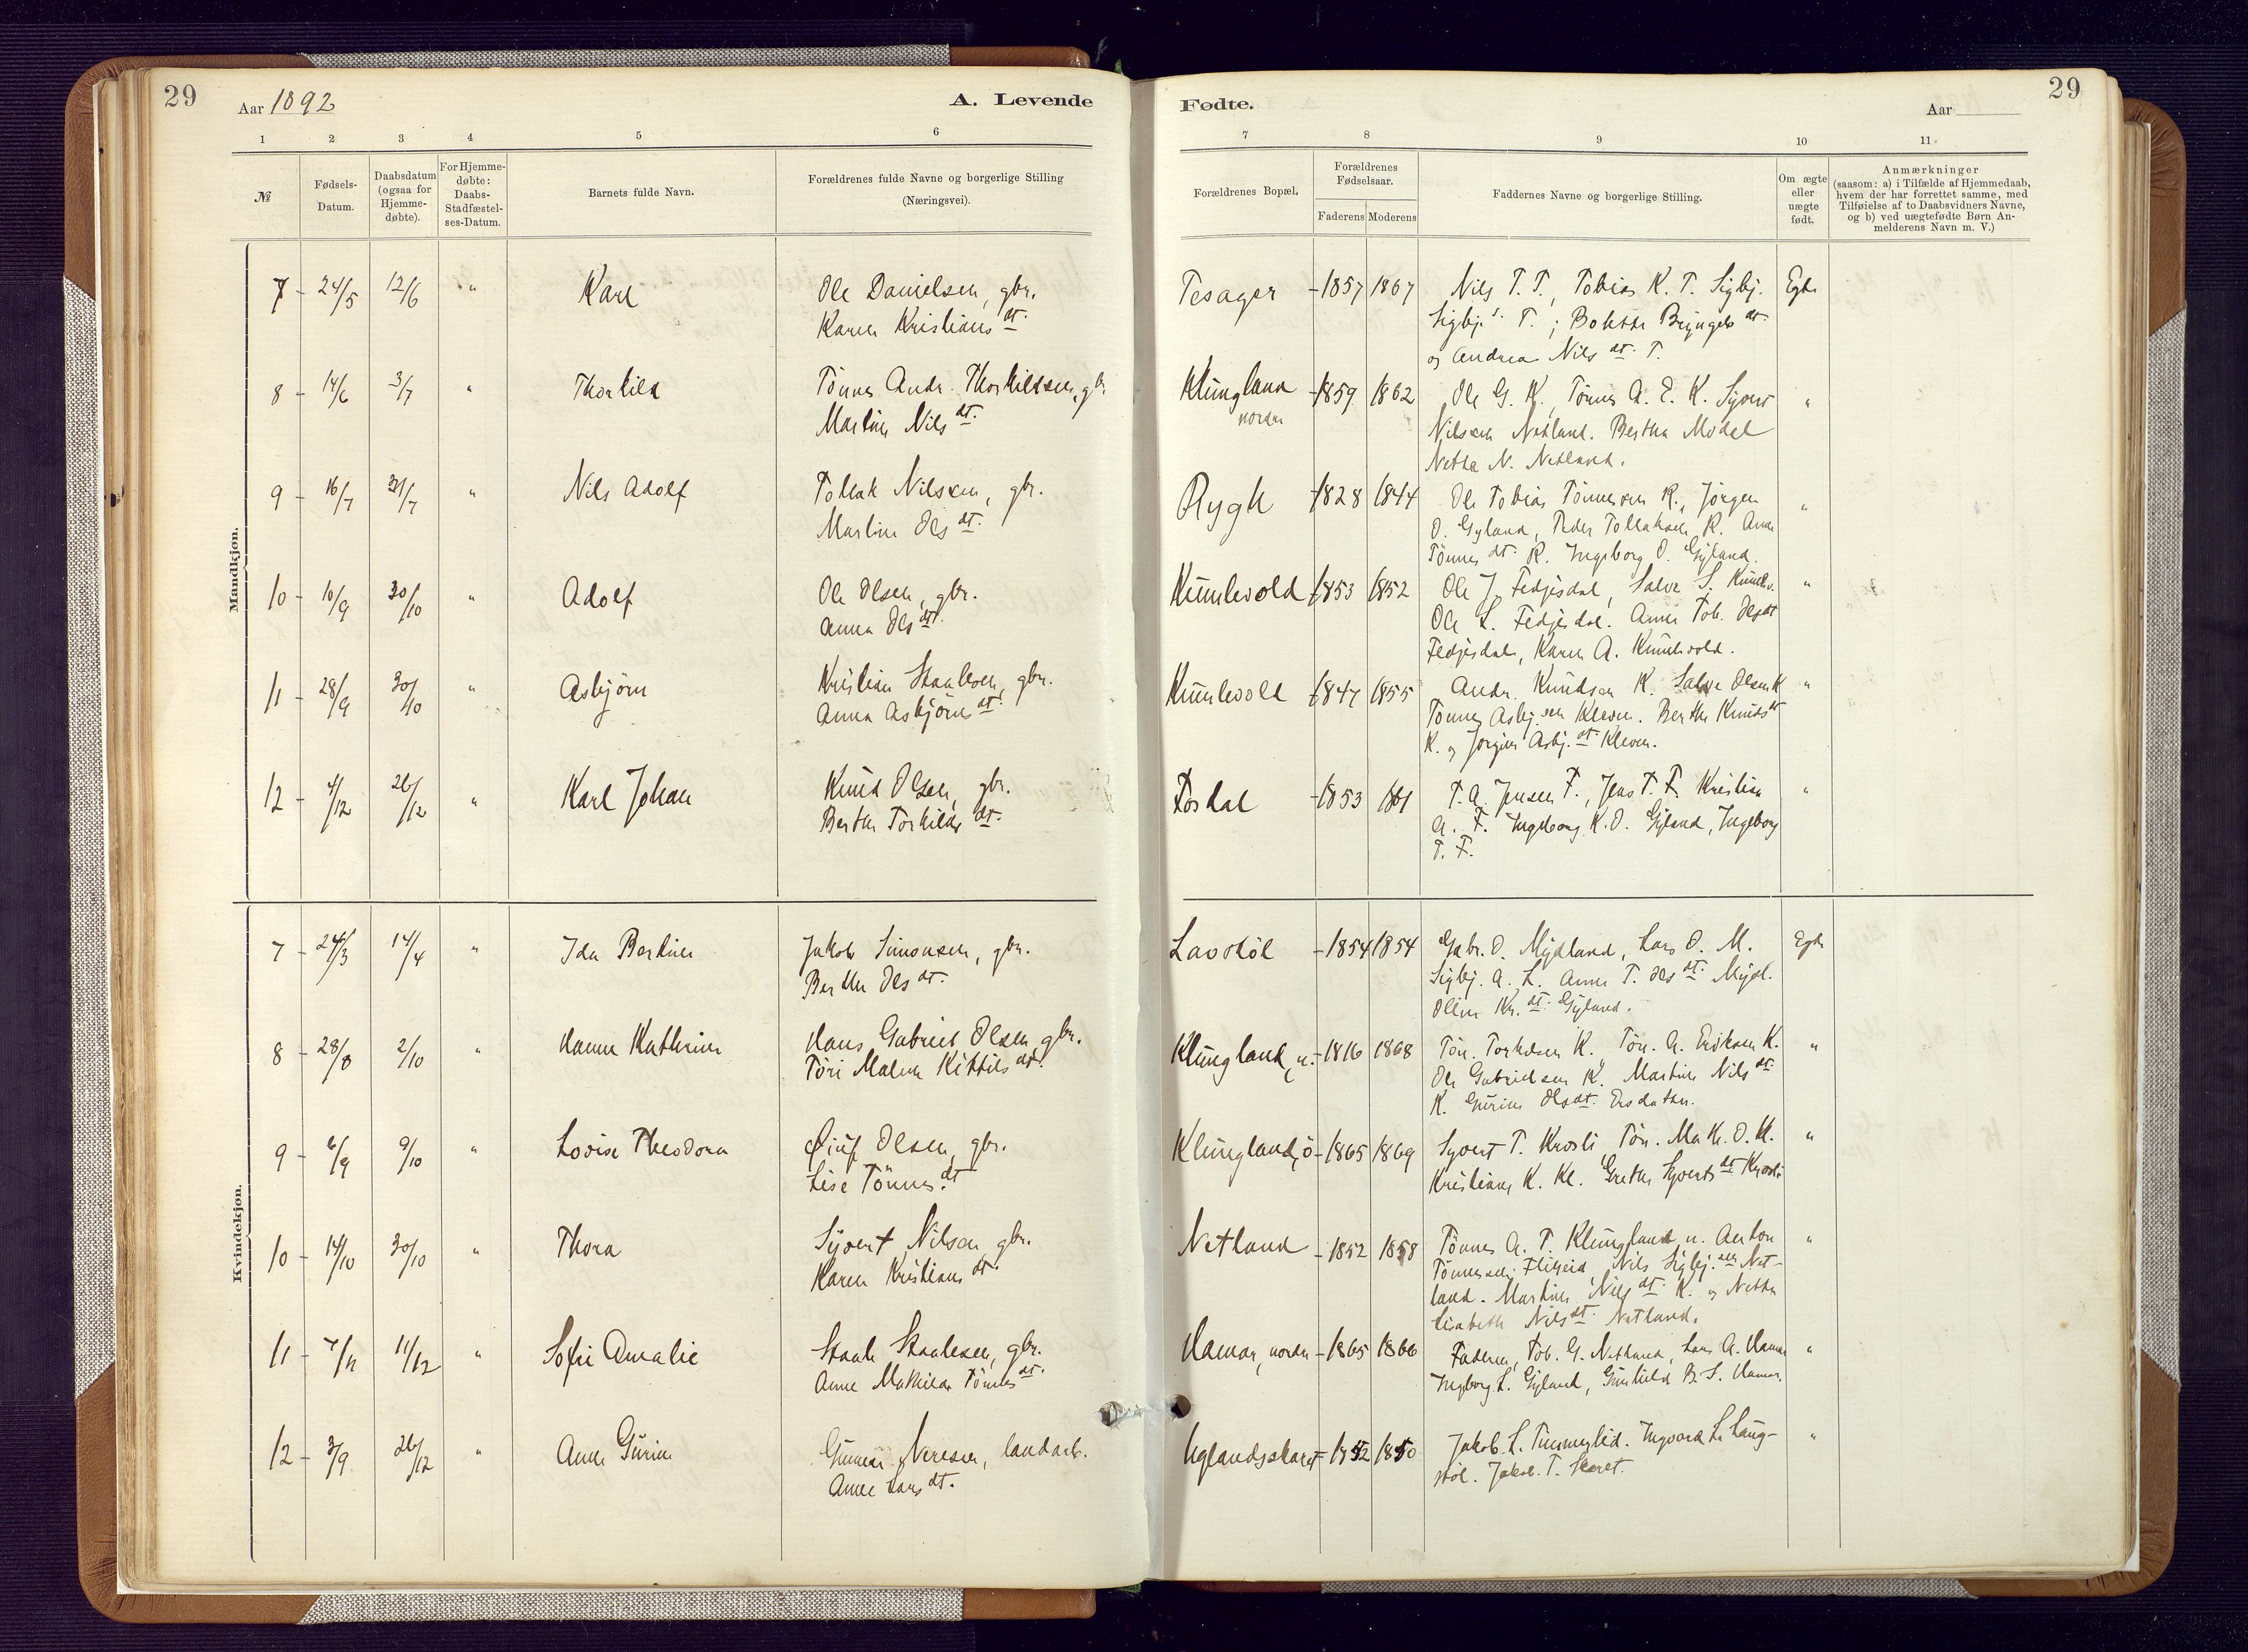 29
Aar 1892
A. Levende
1 2 3 4 5 6
№
Fødsels-
Datum.
Daabsdatum
(ogsaa for
Hjemme-
døbte).
For Hjemme-
døbte:
Daabs-
Stadfæstel-
ses-Datum.
Barnets fulde Navn.
Forældrenes fulde Navne og borgerlige Stilling
(Næringsvei).
Mandkjøn.
7 - 24/5 12/6 " Karl Ole Danielsen, gbr.
Karen Kristians dt.
8 - 14/6 3/7 " Thorkild Tönnes Andr. Thorkildsen, gbr.
Martine Nils dt.
9 - 16/7 31/7 " Nils Adolf Tollak Nilssen, gbr.
Martine Ols dt.
10 - 10/9 30/10 " Adolf Ole Olsen, gbr.
Anna Ols dt.
11 - 28/9 30/10 " Asbjörn Kristian Staalesen, gbr.
Anna Asbjörns dt.
12 - 4/12 26/12 " Karl Johan Knud Olsen, gbr.
Berthe Torkilds dt.
Kvindekjøn.
7 - 24/3 14/4 " Ida Bertine Jakob Simonsen, gbr.
Berthe Ols dt.
8 - 28/8 2/10 " Hanne Kathrine Hans Gabriel Olsen gbr.
Töri Malene Kittils dt.
9 - 6/9 9/10 " Lovise Theodora Olsen, gbr.
Lise Tönnes dt
10 - 14/10 30/10 " Thora Sÿvert Nilsen, gbr.
Karen Kristians dt.
11 - 7/11 11/12 " Sofie Amalie Staale Staalesen, gbr.
Anne Mathilde Tönnes dt.
12 - 3/9 26/12 " Anne Gürine Gunnar landarb.
Anne Lars dt.
Fødte.
Aar
29
7 8 9 10 11
Forældrenes Bopæl.
Forældrenes
Fødselsaar.
Faderens Moderens
Faddernes Navne og borgerlige Stilling.
Om ægte
eller
uægte
født.
Anmærkninger
(saasom: a) i Tilfælde af Hjemmedaab,
hvem der har forrettet samme, med
Tilføielse af to Daabsvidners Navne,
og b) ved uægtefødte Børn An-
melderens Navn m. V.)
Tesager - 1857 1867 Nils T. T., Tobias K. T. Sigbj. Egte
Sigbj s. T.; Bolette Bryngels dt.
og Andrea Nils dt. T.
Klüngland - 1859 1862 Ole G. K., Tönnes A. E. K. Syvert "
nordre Nilssen Netland. Bertha Modal
Netta N. Netland.
Rygh - 1828 1844 Ole Tobias Tönnessen R., Jörgen "
O. Gyland, Peder Tollaksen R. Anne
Tönnes dt. R. Ingeborg O. Gÿland.
Kumlevold - 1853 1852 Ole J. Fedjedal, Salve S. Kumlev. "
Ole L. Fedjedal. Anne Tob. Olsdt
Fedjedal, Karen A. Kumlevold.
Kumlevold - 1847 1855 Andr. Knudsen K. Salve Olsen K "
Tönnes Asbj. sen Kleven. Berthe Knuds dt
K. og Jörgine Asbj. dt Kleven.
Fosdal - 1853 1861 T. A. Jensen F., Jens T. F. Kristian "
A. F. Ingeborg K. O. Gÿland, Ingeborg
T. F.
Lavstöl - 1854 1854 Gabr. O. Mydland, Lars O. M. Egte
Sigbj. A. L. Anne T. Ols dt. Mydl.
Oline Kr. dt. Gÿland.
Klüngland, n. - 1816 1868 Tön. Torkilsen K. Tön. A. Eriksen K. "
Ole Gabrielsen K. Martine Nils dt.
K. Gürine Olsdt.
Klüngland, ö - 1865 1869 Syvert T. Krosli, Tön. O. K. "
Kristiane K. Kl. Grethe Syverts dt Krosli
Netland - 1852 1858 Tönnes A. T. Klüngland n. Anton "
Tönnessen Flikeid, Nils Sigbj. sen Net-
land. Martine Nils dt. K. og Netta
Lisabeth Nils dt. Netland.
Hamar, nordre - 1865 1866 Faderen, Tob. G. Netland, Lars A. Hamar "
Ingeborg L. Gÿland, Günhild B. S. Hamar.
Uglandsskaret - 1852 1850 Jakob L. Ingvard L. Laug- "
stöl. Jakob T. Skaret.